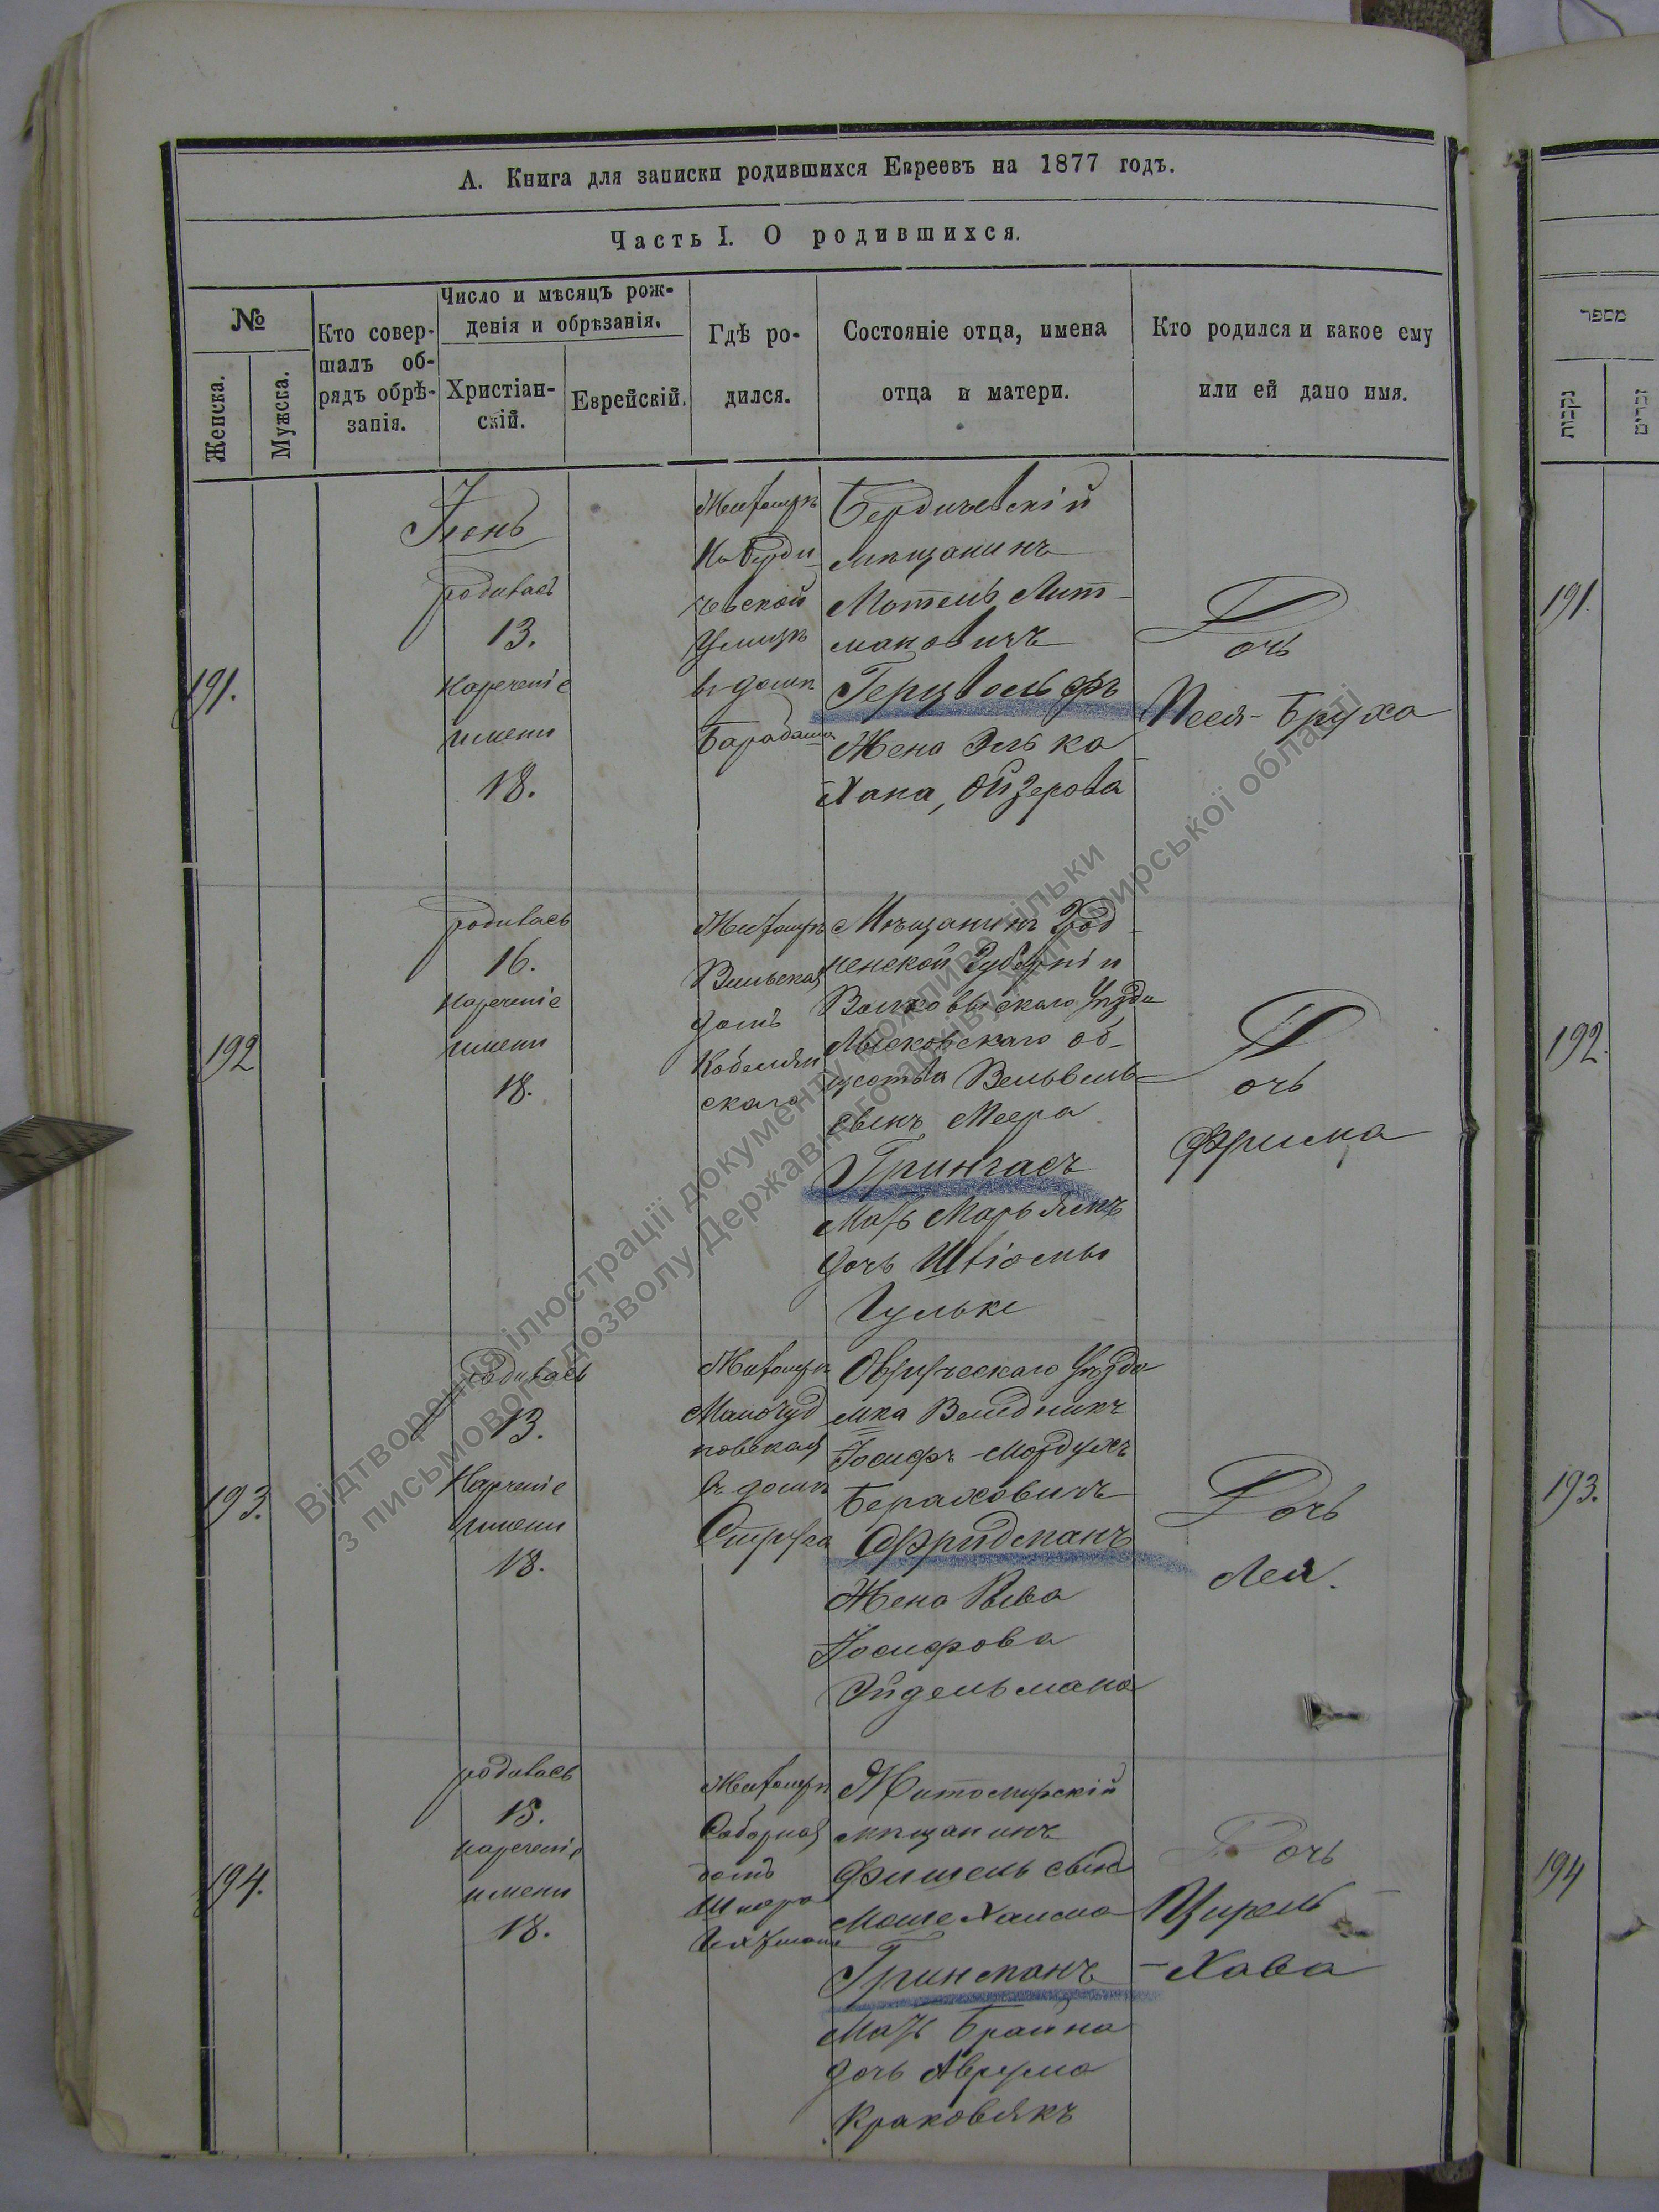 А. Книга для записки родившихся Евреевъ на 1877 годъ.
Часть I. О родившихся.
№
Женска.
Мужска.
Кто совер-
шалъ об-
рядъ обрѣ-
занія.
Число и мѣсяцъ рож-
денія и обрѣзанія.
Христіан-
скій.
Еврейскій.
Гдѣ ро-
дился.
Состояніе отца, имена
отца и матери.
Кто родился и какое ему
или ей дано имя.
191.
Іюнь
родилась
13.
Нареченіе
имени
18.
Житомиръ
На Берди
чевской
Улицѣ
въ домѣ
Барабаша
Бердичевскій
мѣщанинъ
Мотель Лит-
мановичъ
Герцвольфъ
Жена Элька
Хана, Ойзерова
Дочь
Песя-Бруха
192
родилась
16.
Нареченіе
имени
18.
Житомиръ
Вильская
домъ
Кобелян
скаго
Мѣщанинъ Грод-
ненской Губерніи
Волковыскаго Уѣзда
Лысковскаго об-
щества Вельвель-
сынъ Меера
Грингасъ
Мать Марьямъ
дочь
Дочь
Фрима
193.
Родилась
13.
Нареченіе
имени
18.
Житомиръ
Малочуд
новская
въ домѣ
Овручскаго Уѣзда
мка Веледникъ
Іосифъ-Мордухъ
Берковичъ
Фридманъ
Жена Рыва
Іосифова
Эйдельмана
Дочь
Лея.
194.
родилась
15.
нареченіе
имени
18.
Житомиръ
Соборная
домъ
Житомирскій
мѣщанинъ
Фишель сынъ
Моше Хаима
Гринманъ
Мать Брайна
дочь Аврума
Краковякъ
Дочь
Цирель-
-Хава
מספר
נקבות
זכרים
191.
192.
193.
194
Відтворення ілюстрації документу можливе тільки
з письмового дозволу Державного архіву Житомирської області